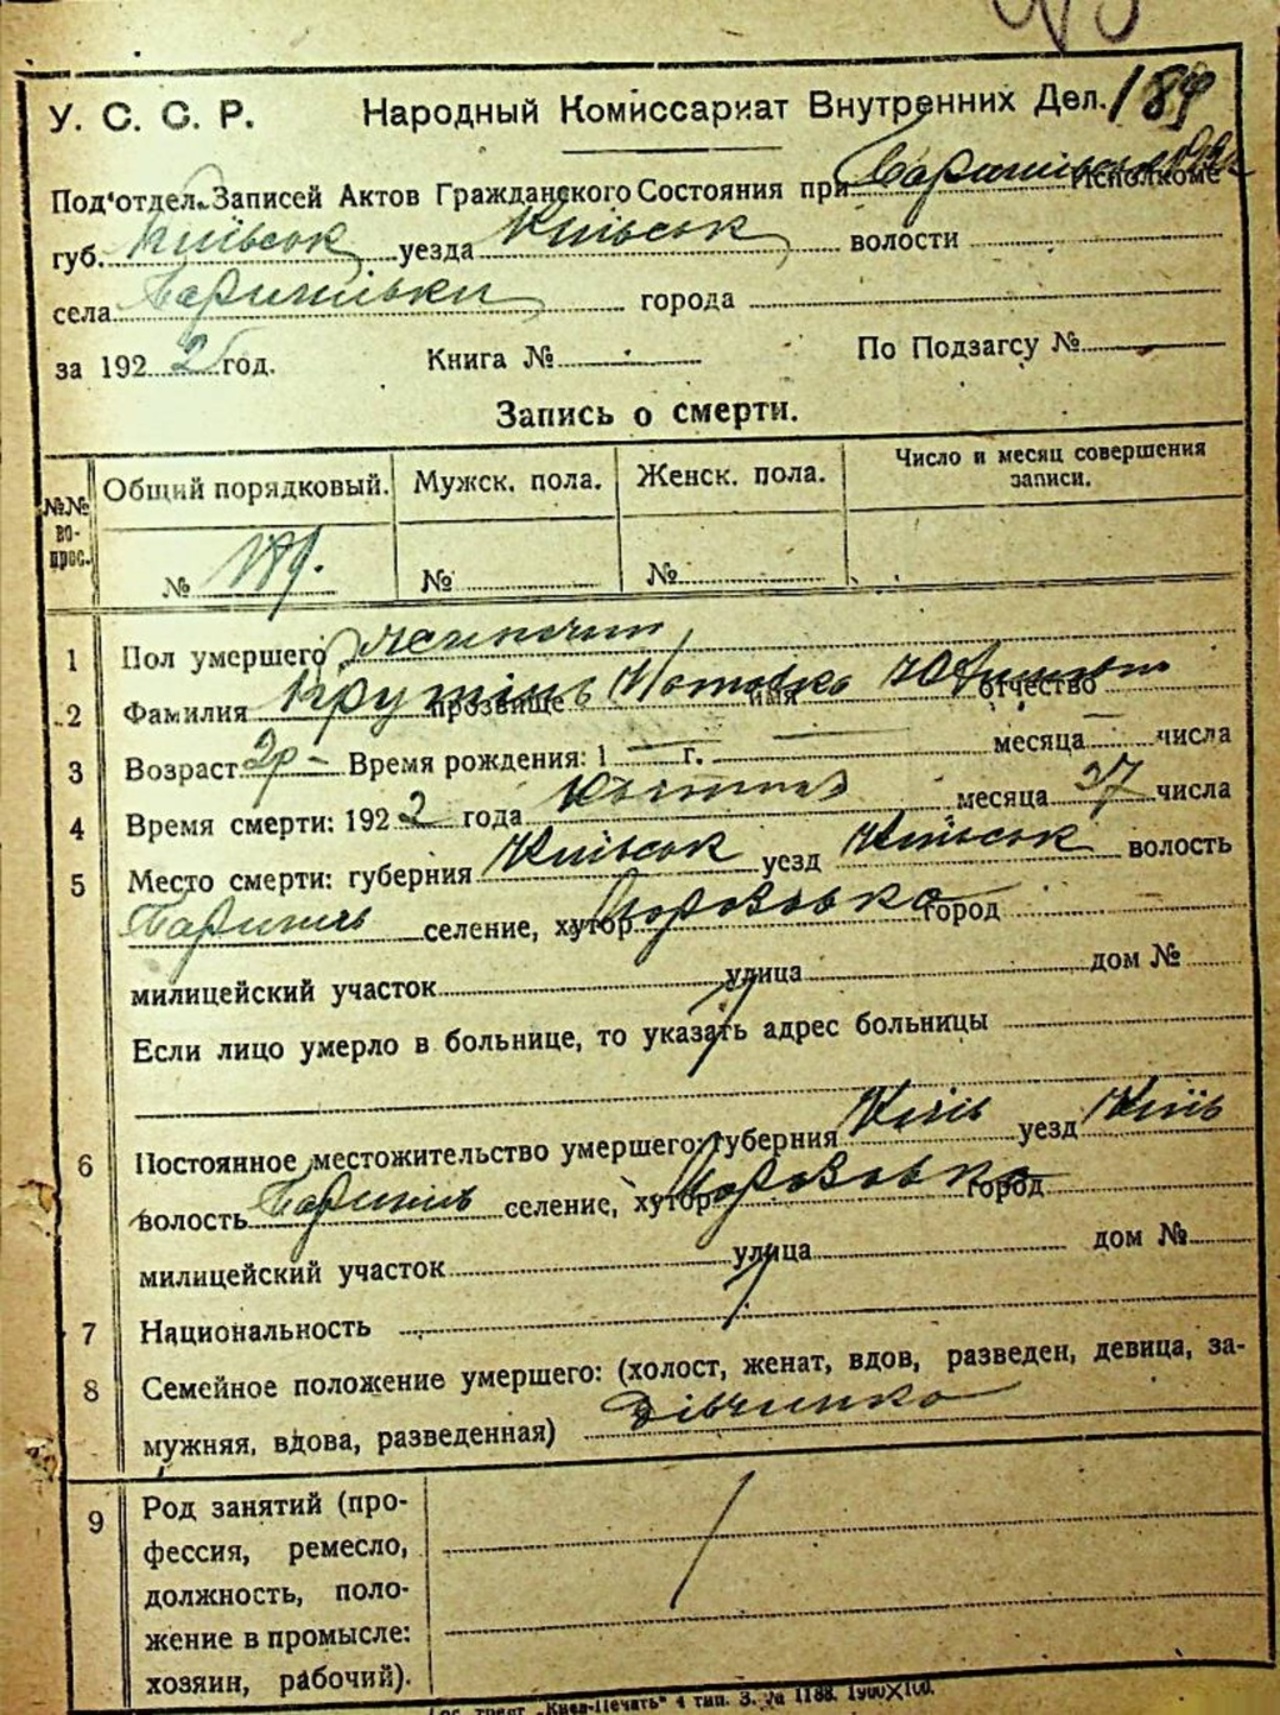 У. С. С. Р. Народный Комиссариат Внутренних Дел. 189
Под'отдел Записей Актов Гражданского Состояния при Исполкоме
губ. Київськ уезда Київськ волости
села города
за 1922 год. Книга № По Подзагсу №
Запись о смерти.
№№ во- прос. Общий порядковый. Мужск. пола. Женск. пола. Число и месяц совершения записи.
№ 189. № №
1 Пол умершего
2 Фамилия прозвище имя отчество
3 Возраст 2р – Время рождения: 1 — г. — месяца — числа
4 Время смерти: 1922 года месяца 27 числа
5 Место смерти: губерния Київськ уезд Київськ волость
селение, хутор город
милицейский участок улица дом №
Если лицо умерло в больнице, то указать адрес больницы
6 Постоянное местожительство умершего: губерния Київ уезд Київ
волость селение, хутор город
милицейский участок улица дом №
7 Национальность
8 Семейное положение умершего: (холост, женат, вдов, разведен, девица, за-
мужняя, вдова, разведенная) Дівчинка
9 Род занятий (про-
фессия, ремесло,
должность, поло-
жение в промысле:
хозяин, рабочий).
Гос. трест „Киев-Печать" 4 тип. З. № 1188. 1900×100.